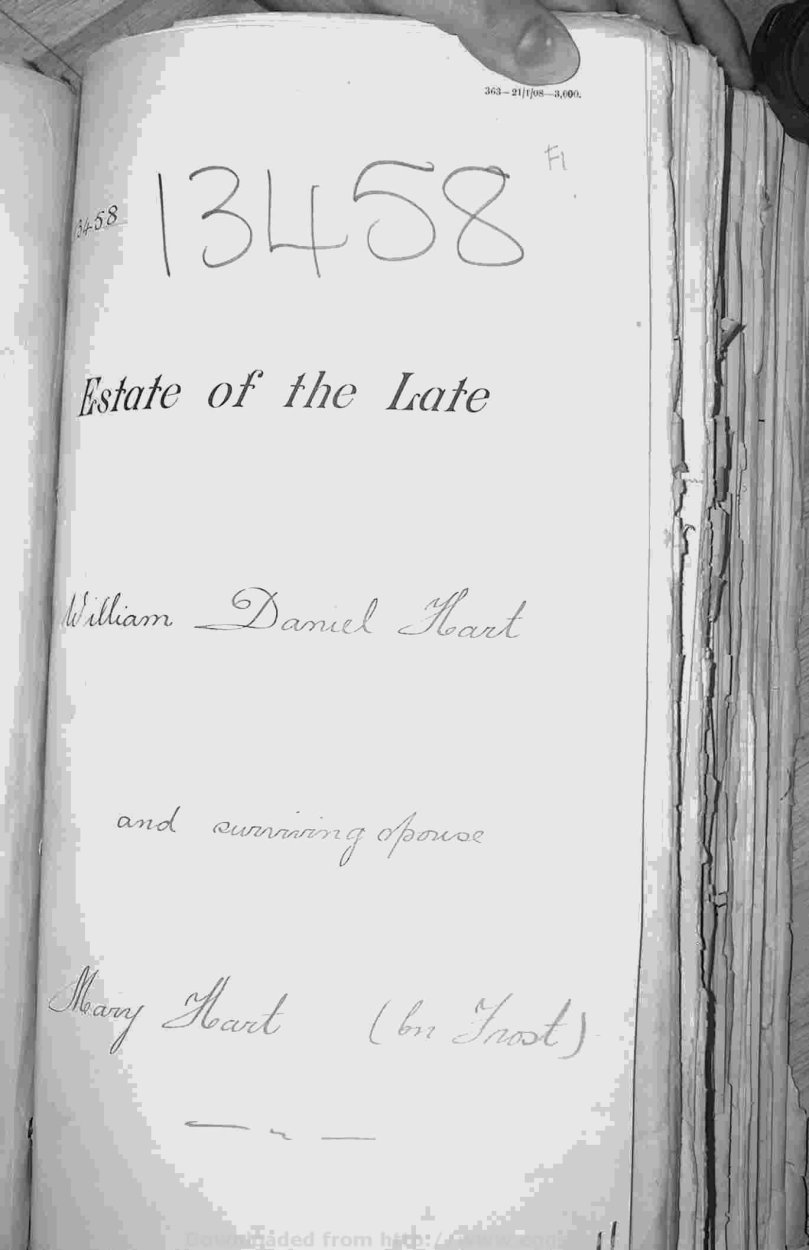 363—21/1/08—3,000.
F1
13458
13458
Estate of the Late
William Daniel Hart
and surviving spouse
Mary Hart (bn Frost)